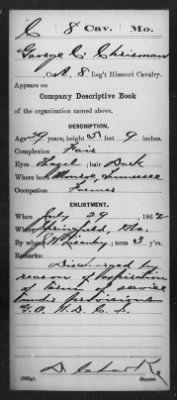 C 8 Cav. Mo.
George C. Chrisman
, Co. A, 8 Reg't Missouri Cavalry.
Appears on
Company Descriptive Book
of the organization named above.
DESCRIPTION.
Age 29 years; height 5 feet 9 inches.
Complexion Fair
Eyes Hazel; hair Dark
Where born Monroe, Tennessee
Occupation Farmer
ENLISTMENT.
When July 29, 1862
Where Springfield, Mo.
By whom ; term 3 y'rs.
Remarks:
Discharged by
reason of expiration
of term of service
under provisions
G.O.
Copyist.